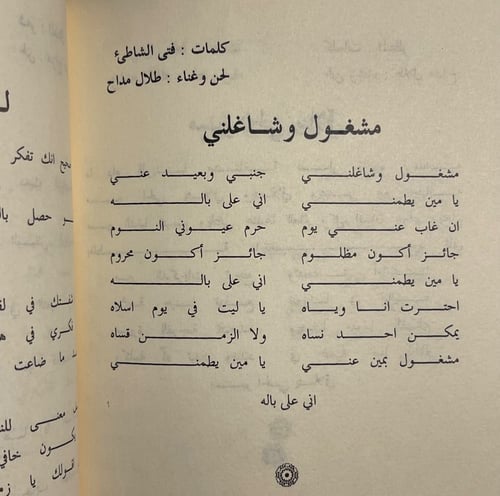 كلمات : فتى الشاطئ
لحن وغناء : طلال مداح
مشغول وشاغلني
مشغول وشاغلني جنبي وبعيد عني
يا مين يطمني اني على باله
ان غاب عني يوم حرم عيوني النوم
جائز أكون مظلوم جائز أكون محروم
يا مين يطمني اني على باله
احترت انا وياه يا ليت في يوم اسلاه
يمكن احد نساه ولا الزمن قساه
مشغول بمين عني يا مين يطمني
اني على باله
صحيح انك تفكر
حصل
في
فكري في
ما ضاعت
معنى
خافي
يا